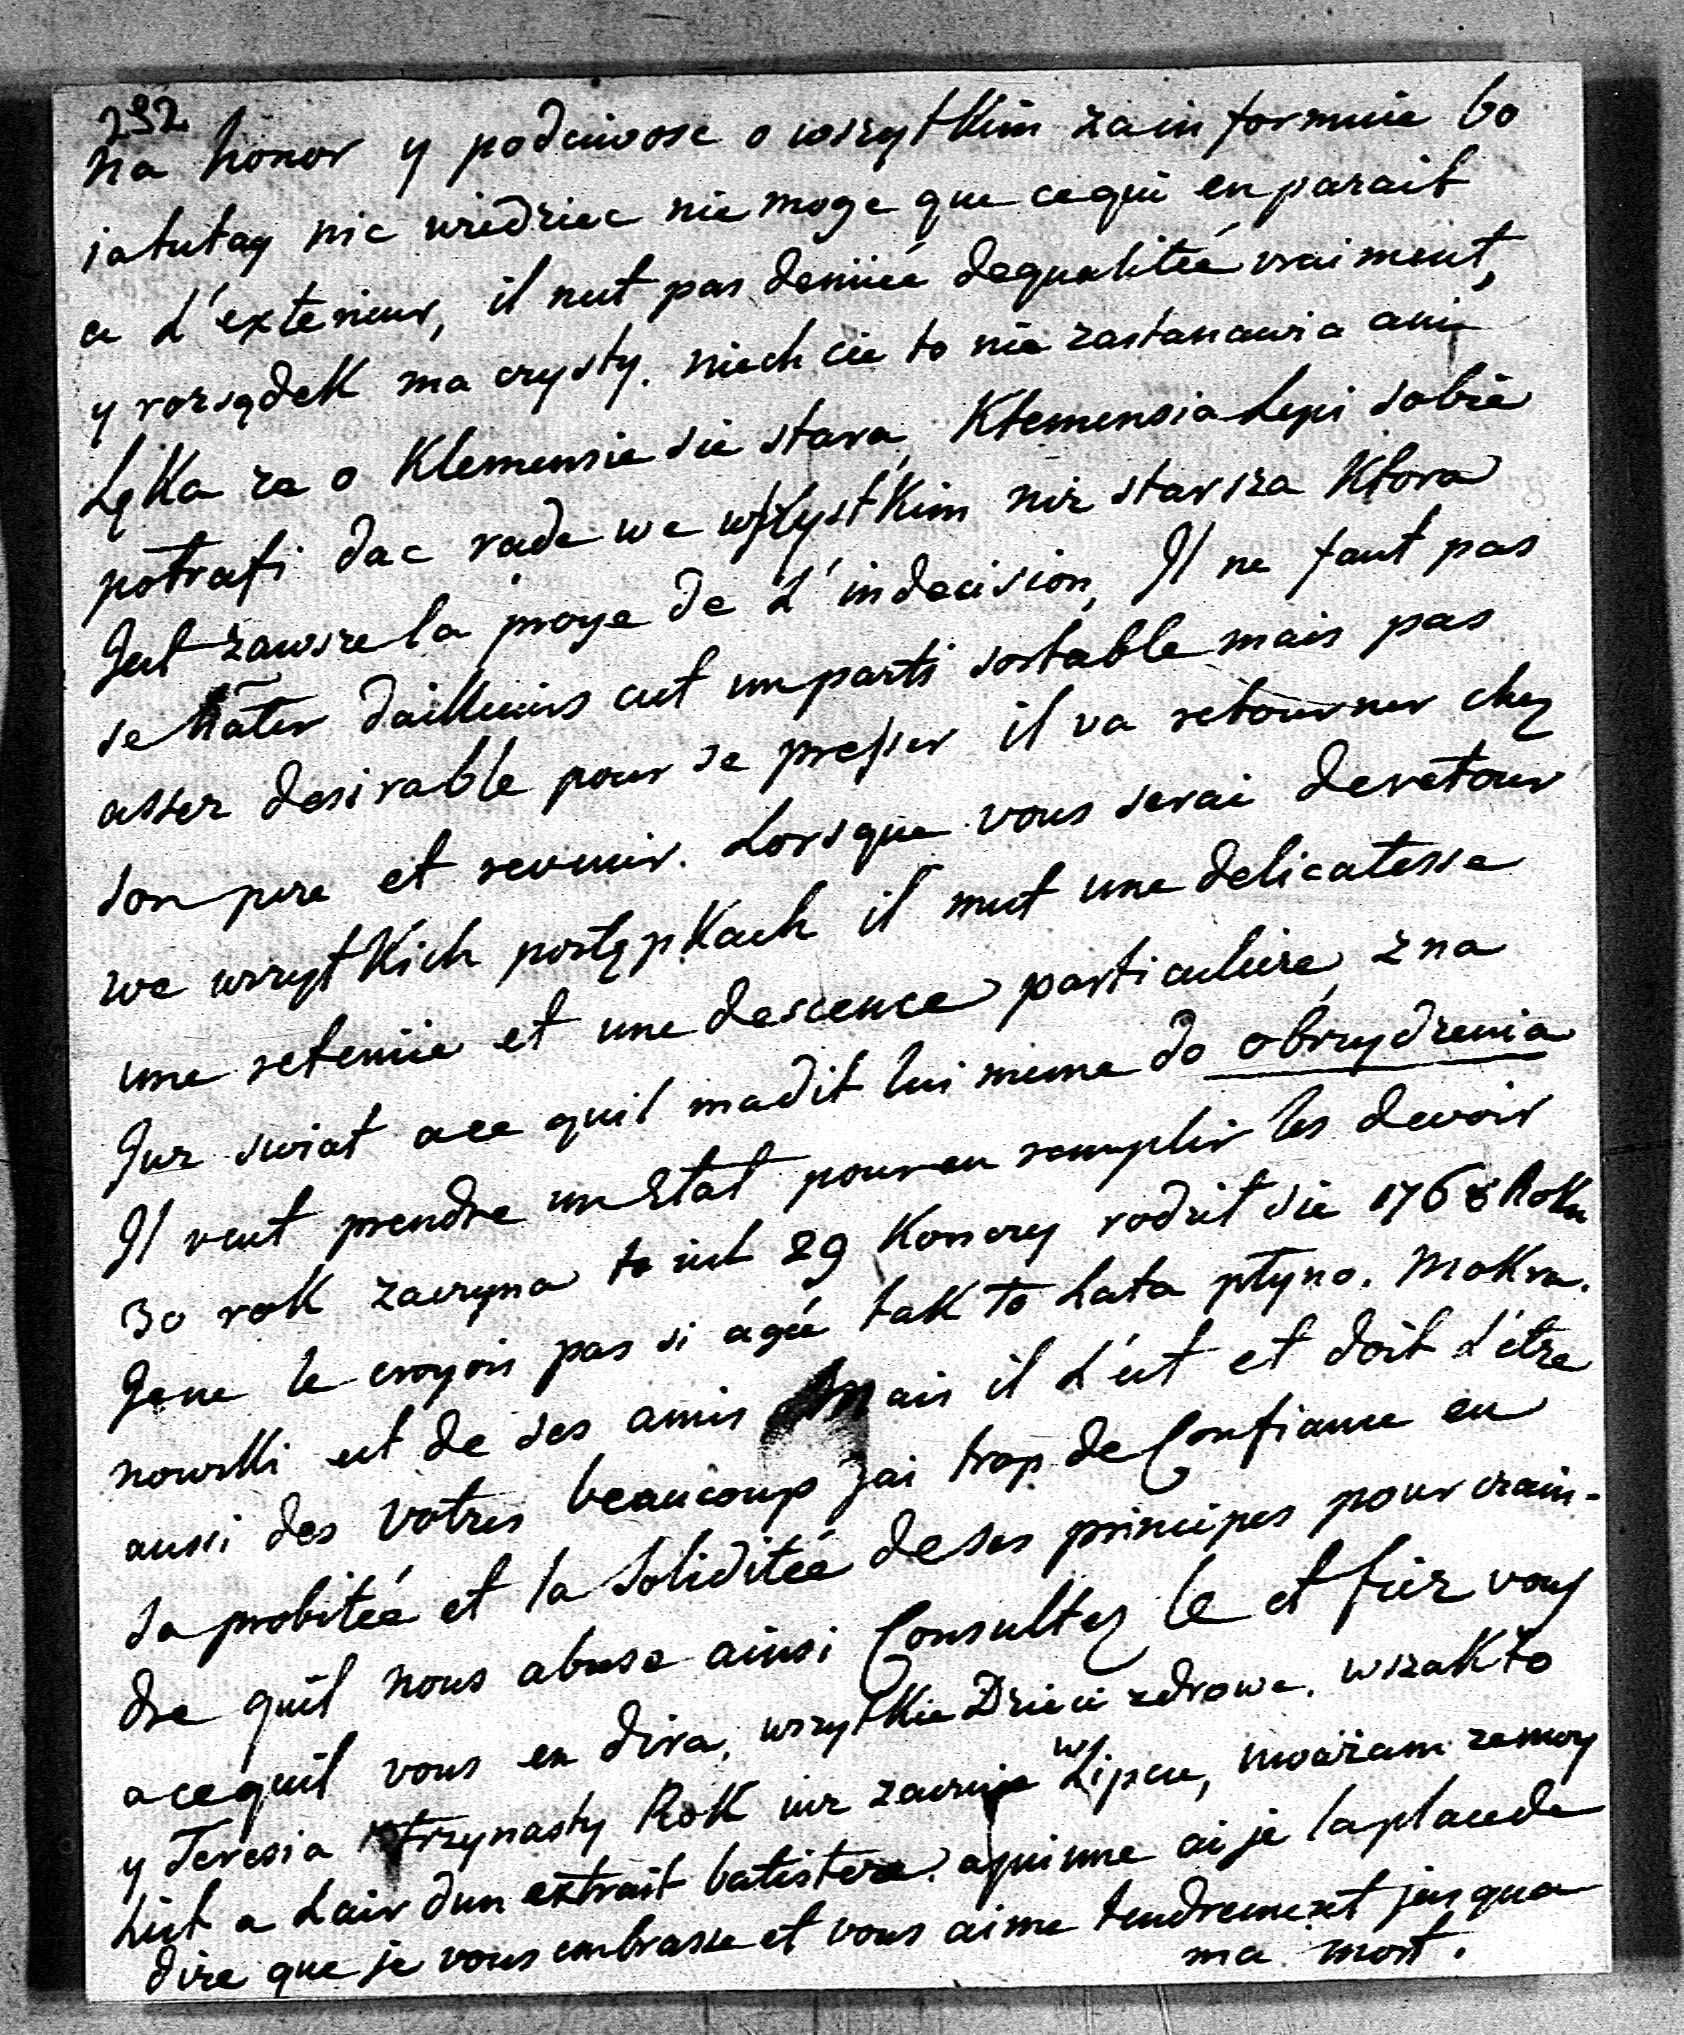 292
na honor y podciwosc o wszytkim zainformuie bo
ia tutay nic wiedziec nie moge que cequi en parait
a L'exterieur, il nest pas deniiée dequalitée vraiment,
y rozsądek ma czysty. niech cie to nie zastanawia ani
Lęka ze o Klemensie sie stara, Klemensia Lepi sobie
potrafi dac rade we wszystkim niz starsza Ktora
Jest zawsze la proye de L'indecision, Il ne faut pas
se hāter dailleurs cest un parti sortable mais pas
assez desirable pour se presser il va retourner chez
son pere et revenir. Lorsque vous serai deretour
we wszytkich postępkach il met une delicatesse
une reteniie et une descence particuliere, zna
Juz swiat a ce quil madit lui meme do obrzydzenia
Il veut prendre un Etat pour en remplir les devoir
30 rok zaczyna to iest 29 Konczy rodzit sie 1768 Roku
Jene le croyois pas si agée tak to Lata płyno. Mokra.
nowski est de ses amis Mais il L'est et doit L'étre
aussi des votres beaucoup jai trop de Confiance en
sa probitée et la Soliditée deses principes pour crain-
dre quil nous abuse ainsi Consultez le et fiez vous
acequil vous en dira, wszytkie Dzieci zdrowe. wszak to
y Teresia trzynasty Rok iuz zacznie w Lipcu, uwazam ze moy
List a Lair dun extrait batistere. apeinne ai je laplacede
dire que je vous embrasse et vous aime tendrement jusqua
ma mort.